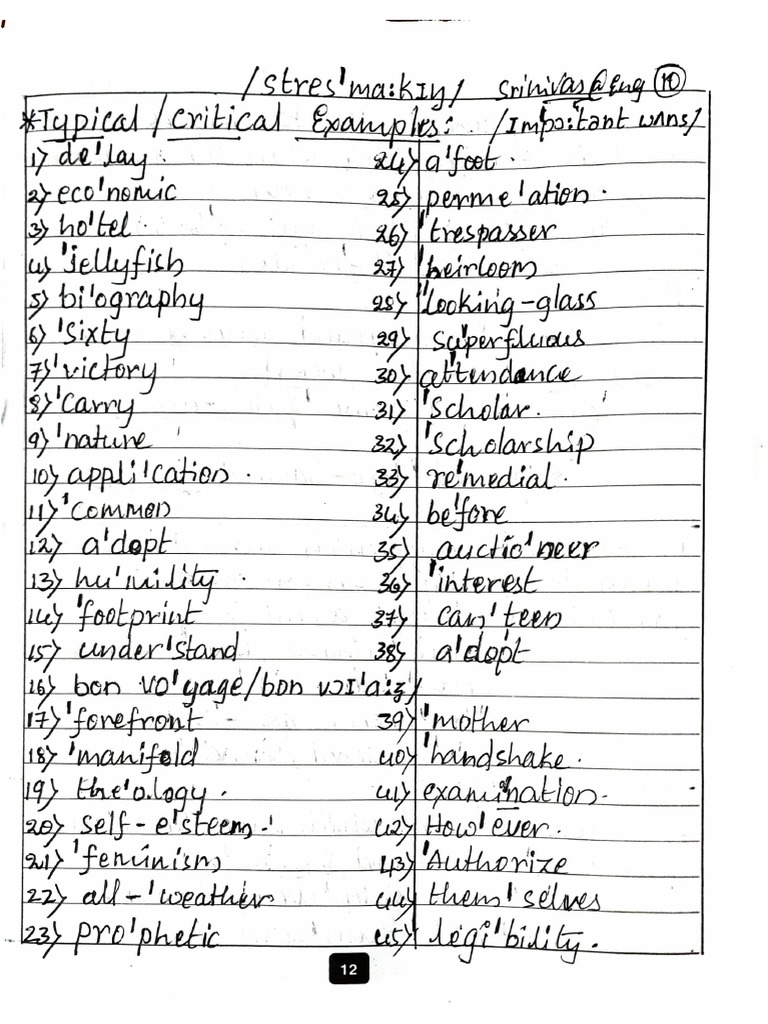 /stres'ma:kIŋ/ Srinivas@Eng 10
*Typical/Critical Examples: /Impo:tant wʌns/
1) de'lay
2) eco'nomic
3) ho'tel
4) 'jellyfish
5) bi'ography
6) 'sixty
7) 'victory
8) 'carry
9) 'nature
10) appli'cation
11) 'common
12) a'dopt
13) hu'mility
14) 'footprint
15) under'stand
16) bon vo'yage/bon vɔI'a:ʒ/
17) 'forefront
18) 'manifold
19) the'ology
20) self-e'steem
21) 'feminism
22) all-'weather
23) pro'phetic
24) a'foot
25) perme'ation
26) 'trespasser
27) 'heirloom
28) 'looking-glass
29) su'perfluous
30) a'ttendance
31) 'scholar
32) 'scholarship
33) re'medial
34) be'fore
35) auctio'neer
36) 'interest
37) can'teen
38) a'dopt
39) 'mother
40) 'handshake
41) exami'nation
42) How'ever
43) 'Authorize
44) them'selves
45) legi'bility
12